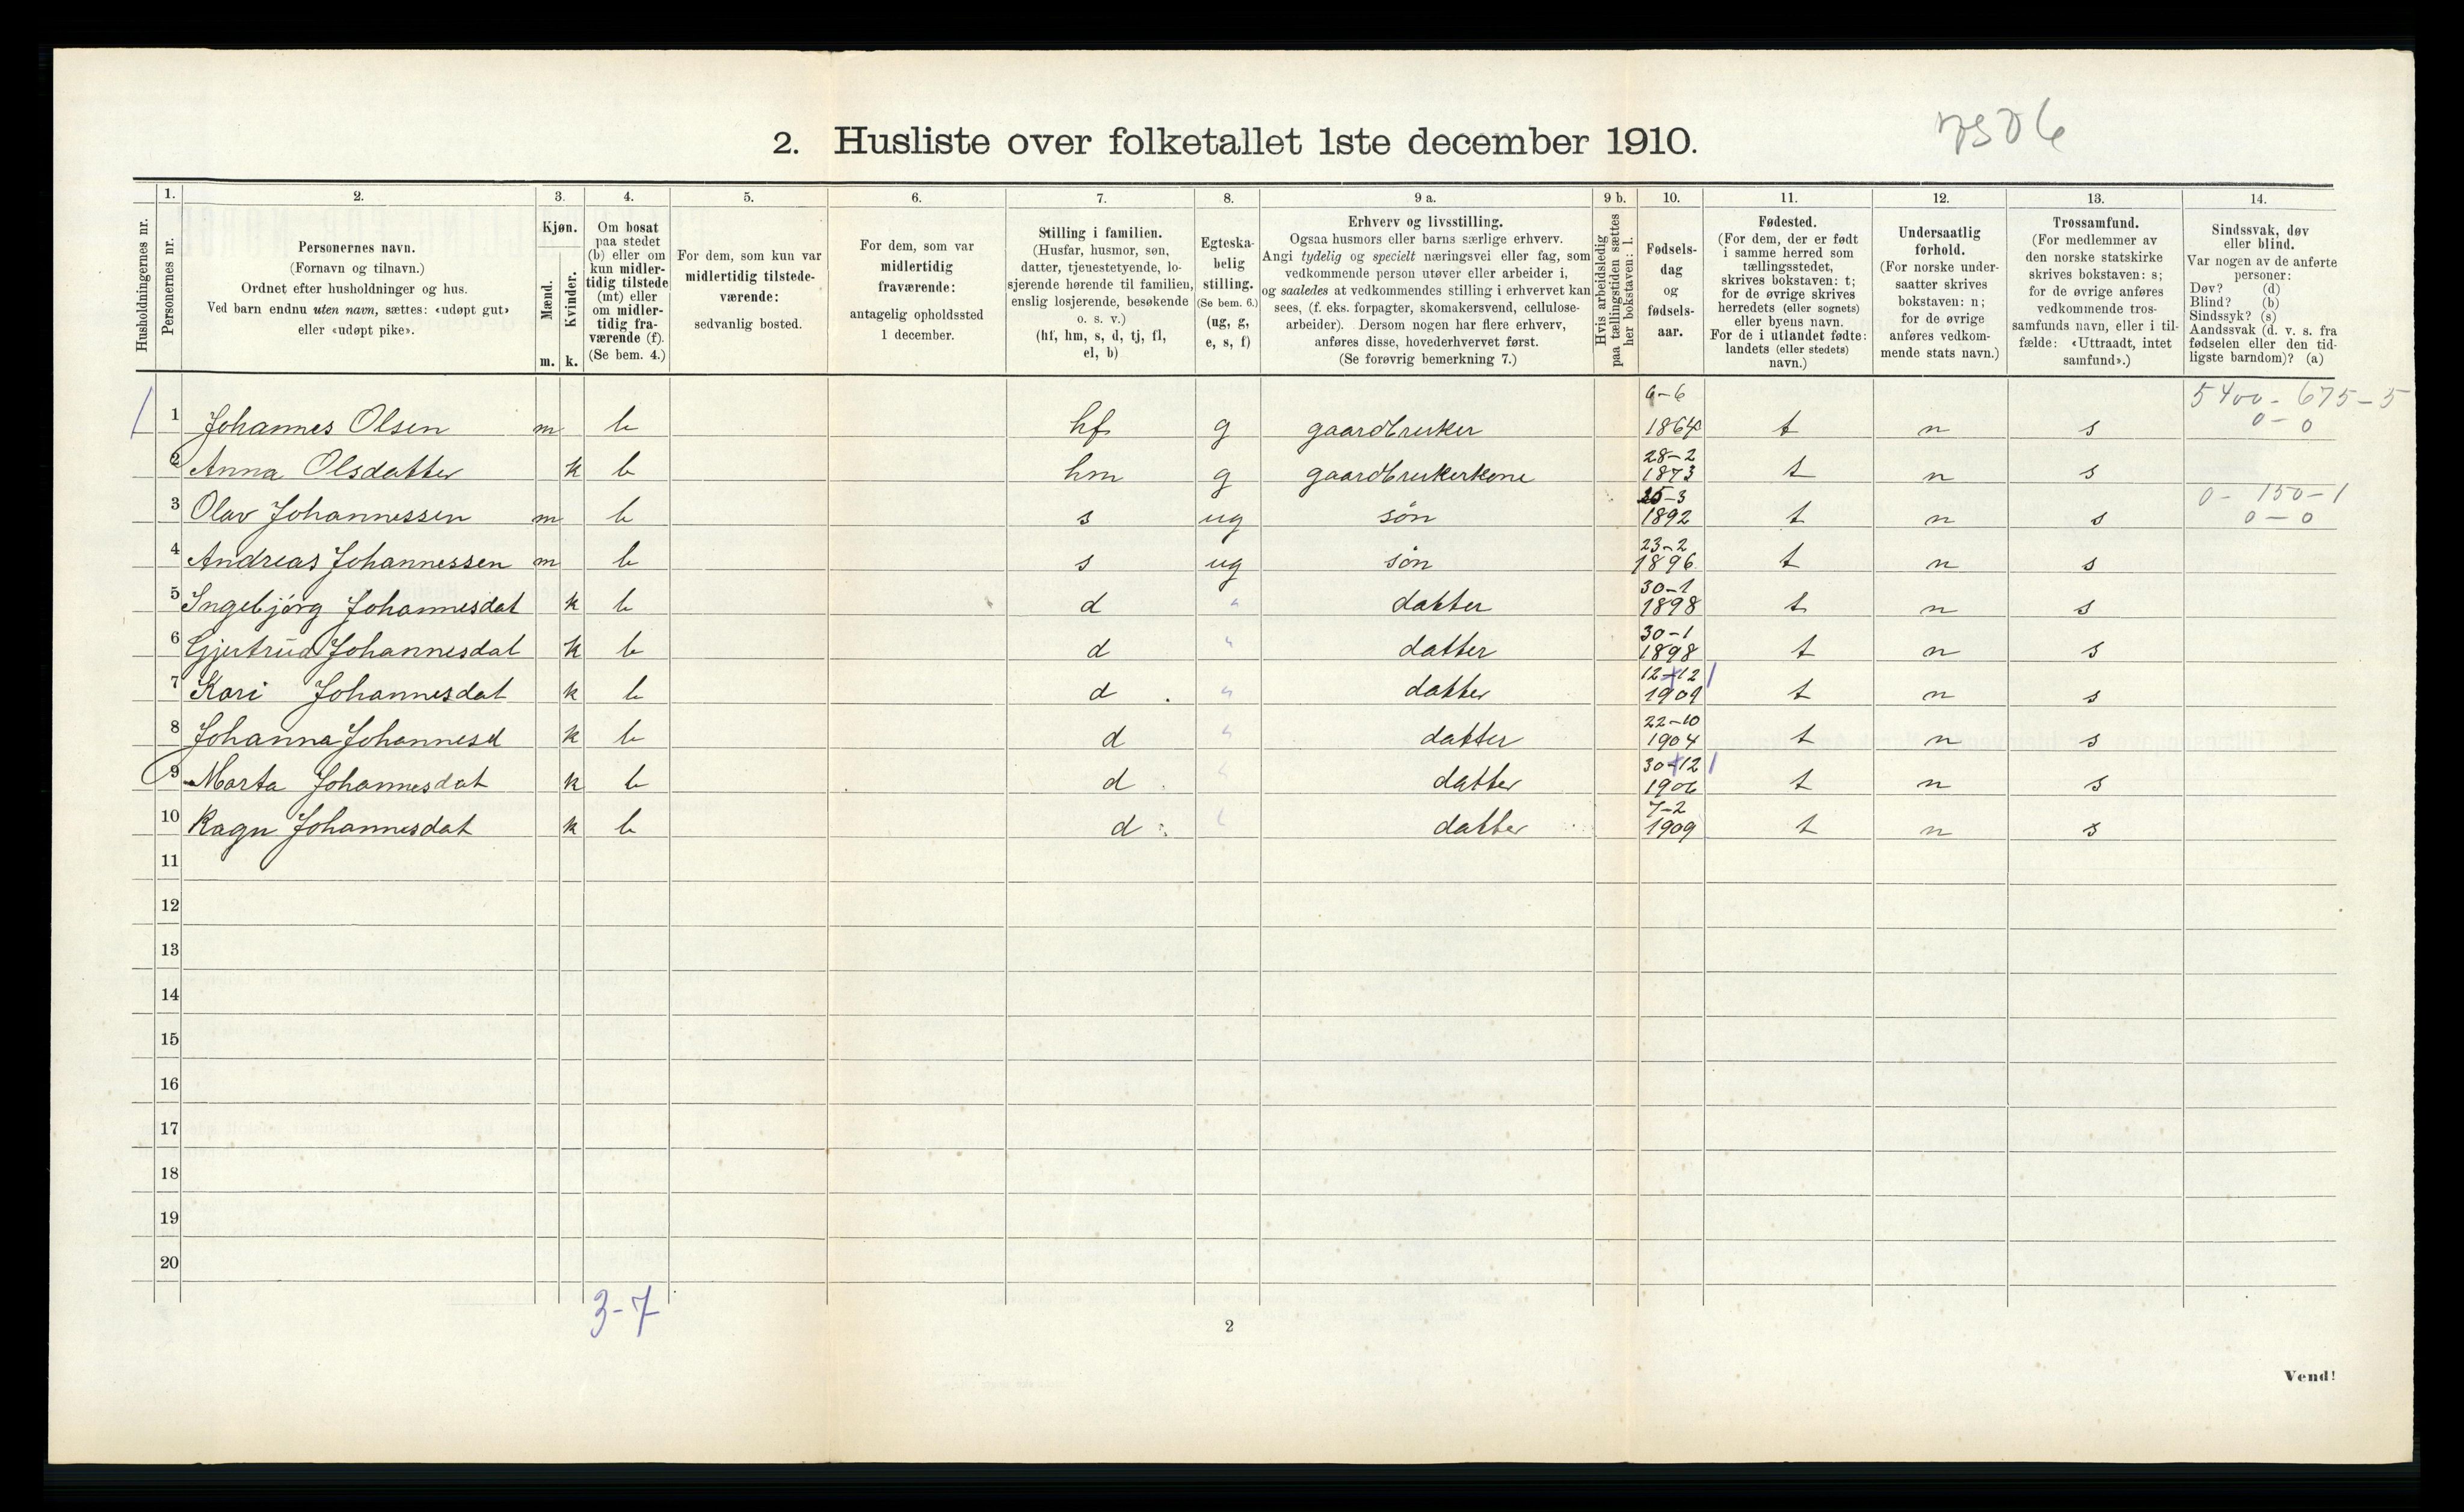 7506
2. Husliste over folketallet 1ste december 1910.
Husholdningernes nr.
1. Personernes nr.
2. Personernes navn.
(Fornavn og tilnavn.)
Ordnet efter husholdninger og hus.
Ved barn endnu uten navn, sættes: «udøpt gut»
eller «udøpt pike».
3. Kjøn.
Mænd. m.
Kvinder. k.
4. Om bosat
paa stedet
(b) eller om
kun midler-
tidig tilstede
(mt) eller
om midler-
tidig fra-
værende (f).
(Se bem. 4.)
5. For dem, som kun var
midlertidig tilstede-
værende:
sedvanlig bosted.
6. For dem, som var
midlertidig
fraværende:
antagelig opholdssted
1 december.
7. Stilling i familien.
(Husfar, husmor, søn,
datter, tjenestetyende, lo-
sjerende hørende til familien,
enslig losjerende, besøkende
o. s. v.)
(hf, hm, s, d, tj, fl,
el, b)
8. Egteska-
belig
stilling.
(Se bem. 6.)
(ug, g,
e, s, f)
9 a. Erhverv og livsstilling.
Ogsaa husmors eller barns særlige erhverv.
Angi tydelig og specielt næringsvei eller fag, som
vedkommende person utøver eller arbeider i,
og saaledes at vedkommendes stilling i erhvervet kan
sees, (f. eks. forpagter, skomakersvend, cellulose-
arbeider). Dersom nogen har flere erhverv,
anføres disse, hovederhvervet først.
(Se forøvrig bemerkning 7.)
9 b. Hvis arbeidsledig
paa tællingstiden sættes
her bokstaven: l.
10. Fødsels-
dag
og
fødsels-
aar.
11. Fødested.
(For dem, der er født
i samme herred som
tællingsstedet,
skrives bokstaven: t;
for de øvrige skrives
herredets (eller sognets)
eller byens navn.
For de i utlandet fødte:
landets (eller stedets)
navn.)
12. Undersaatlig
forhold.
(For norske under-
saatter skrives
bokstaven: n;
for de øvrige
anføres vedkom-
mende stats navn.)
13. Trossamfund.
(For medlemmer av
den norske statskirke
skrives bokstaven: s;
for de øvrige anføres
vedkommende tros-
samfunds navn, eller i til-
fælde: «Uttraadt, intet
samfund».)
14. Sindssvak, døv
eller blind.
Var nogen av de anførte
personer:
Døv? (d)
Blind? (b)
Sindssyk? (s)
Aandssvak (d. v. s. fra
fødselen eller den tid-
ligste barndom)? (a)
1 Johannes Olsen m b hf g gaardbruker 6-6 1864 t n s 5400 - 675-5 0-0
2 Anna Olsdatter k b hm g gaardbrukerkone 28-2 1873 t n s
3 Olav Johannessen m b s ug søn 25-3 1892 t n s 0- 150-1 0-0
4 Andreas Johannessen m b s ug søn 23-2 1896 t n s
5 Ingebjørg Johannesdat k b d " datter 30-1 1898 t n s
6 Gjertrud Johannesdat k b d " datter 30-1 1898 t n s
7 Kari Johannesdat k b d " datter 12-12 1901 t n s
8 Johanna Johannesd k b d " datter 22-10 1904 t n s
9 Marta Johannesdat k b d " datter 30-12 1906 t n s
10 Ragn Johannesdat k b d " datter 7-2 1909 t n s
11
12
13
14
15
16
17
18
19
20
3-7
2
Vend!